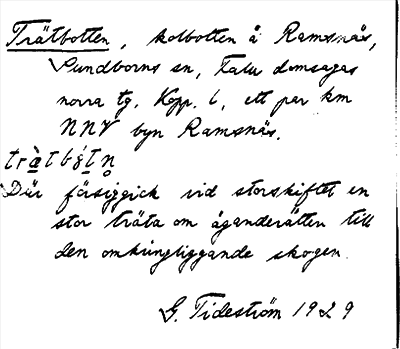 Trätbotten, kolbotten å Ramsnäs,
Sundborns sn, Falu domsagas
norra tg, Kopp. l, ett par km
NNV byn Ramsnäs.
trä̀tbó̜tn̥
Där försiggick vid storskiftet en
stor träta om äganderätten till
den omkringliggande skogen.
G. Tideström 1929